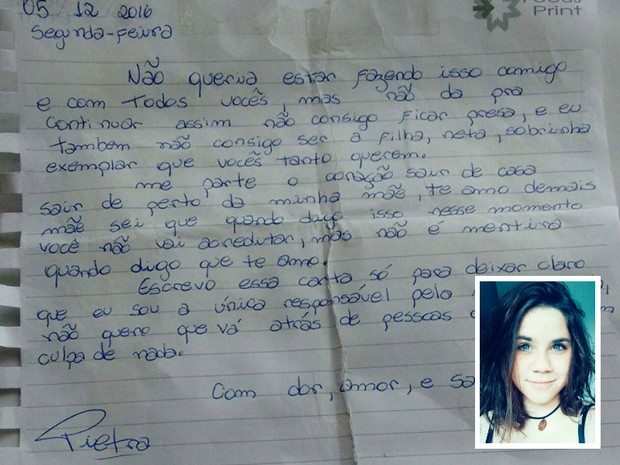 05/12/2016
Segunda-Feira
Focus
Print
Não queria estar fazendo isso comigo
e com todos vocês, mas não da pra
continuar assim não consigo ficar presa, e eu
também não consigo ser a filha, neta, sobrinha
exemplar que vocês tanto querem.
me parte o coração sair de casa
sair de perto da minha mãe, te amo demais
mãe sei que quando digo isso nesse momento
você não vai acreditar, mas não é mentira
quando digo que te amo.
Escrevo essa carta só para deixar claro
que eu sou a única responsável pelo
não quero que vá atrás de pessoas
culpa de nada.
Com dor, amor, e
Pietra